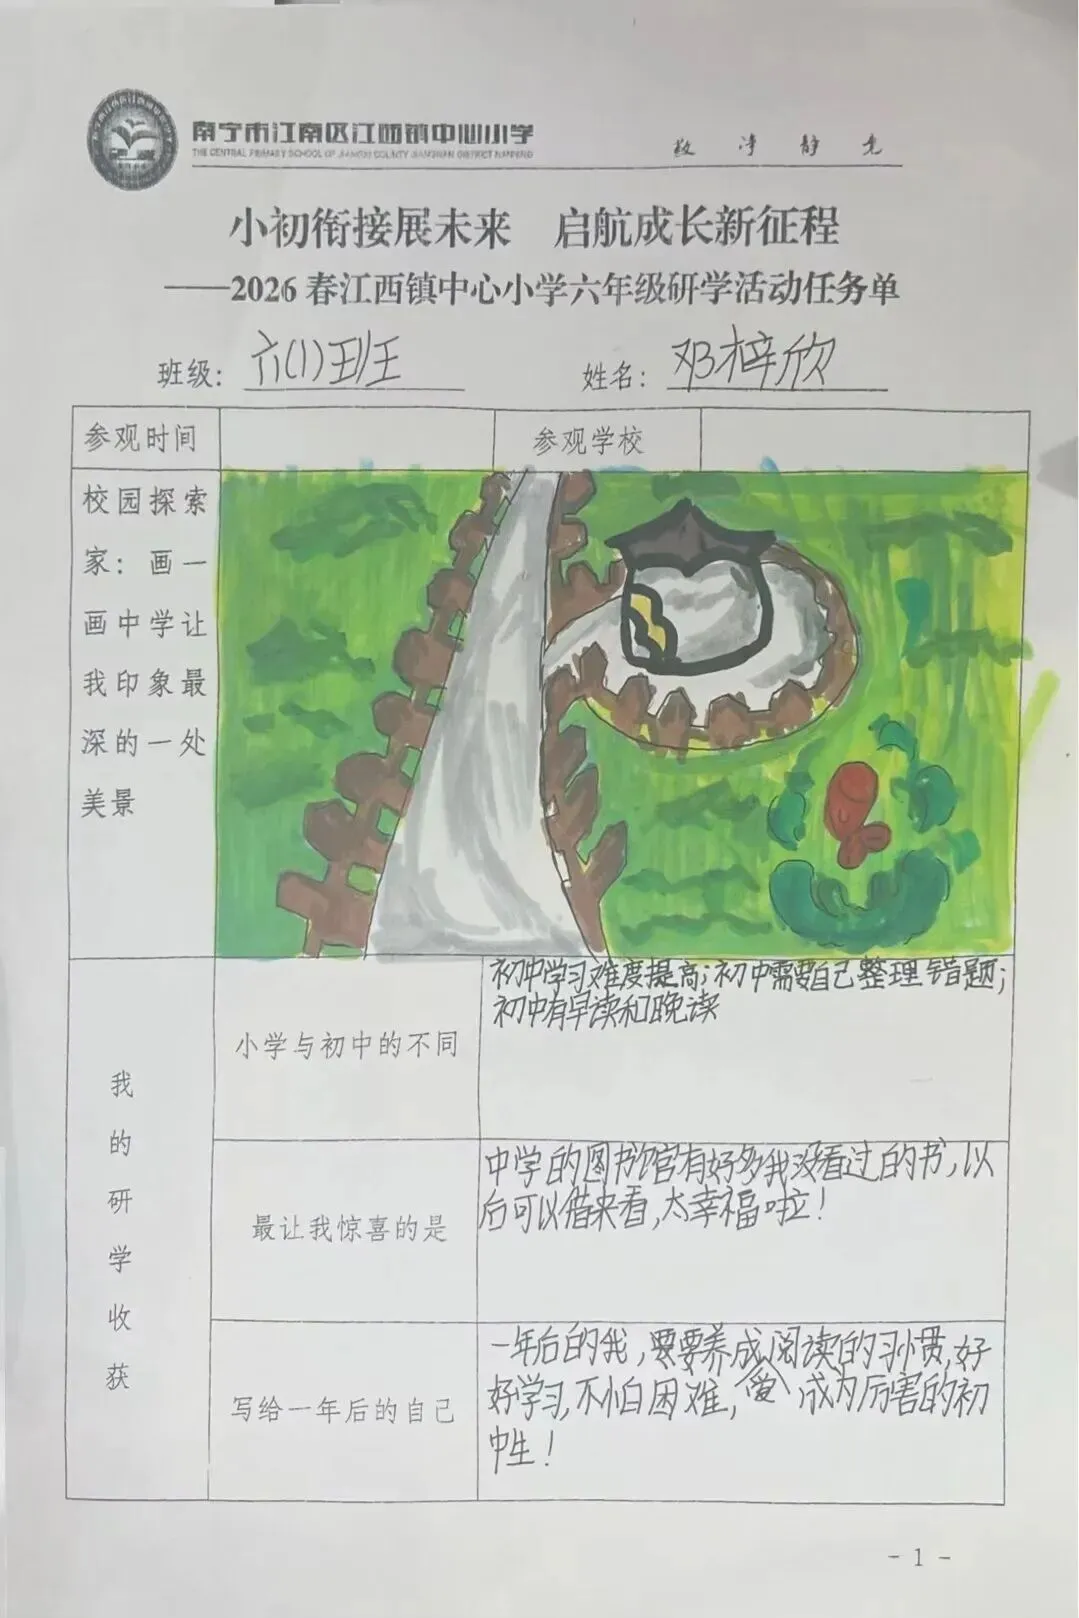 南宁市江南区江西镇中心小学
THE CENTRAL PRIMARY SCHOOL OF JIANGXI COUNTY JIANGNAN DISTRICT NANNING
净 静
小初衔接展未来 启航成长新征程
——2026春江西镇中心小学六年级研学活动任务单
班级：六(1)班 姓名：邓梓欣
参观时间 参观学校
校园探索
家：画一
画中学让
我印象最
深的一处
美景
我的研学收获
小学与初中的不同
初中学习难度提高；初中需要自己整理错题；
初中有早读和晚读
最让我惊喜的是
中学的图书馆有好多我没看过的书，以
后可以借来看，太幸福啦！
写给一年后的自己
一年后的我，要要养成阅读的习惯，好
好学习，不怕困难，爱 成为厉害的初
中生！
- 1 -